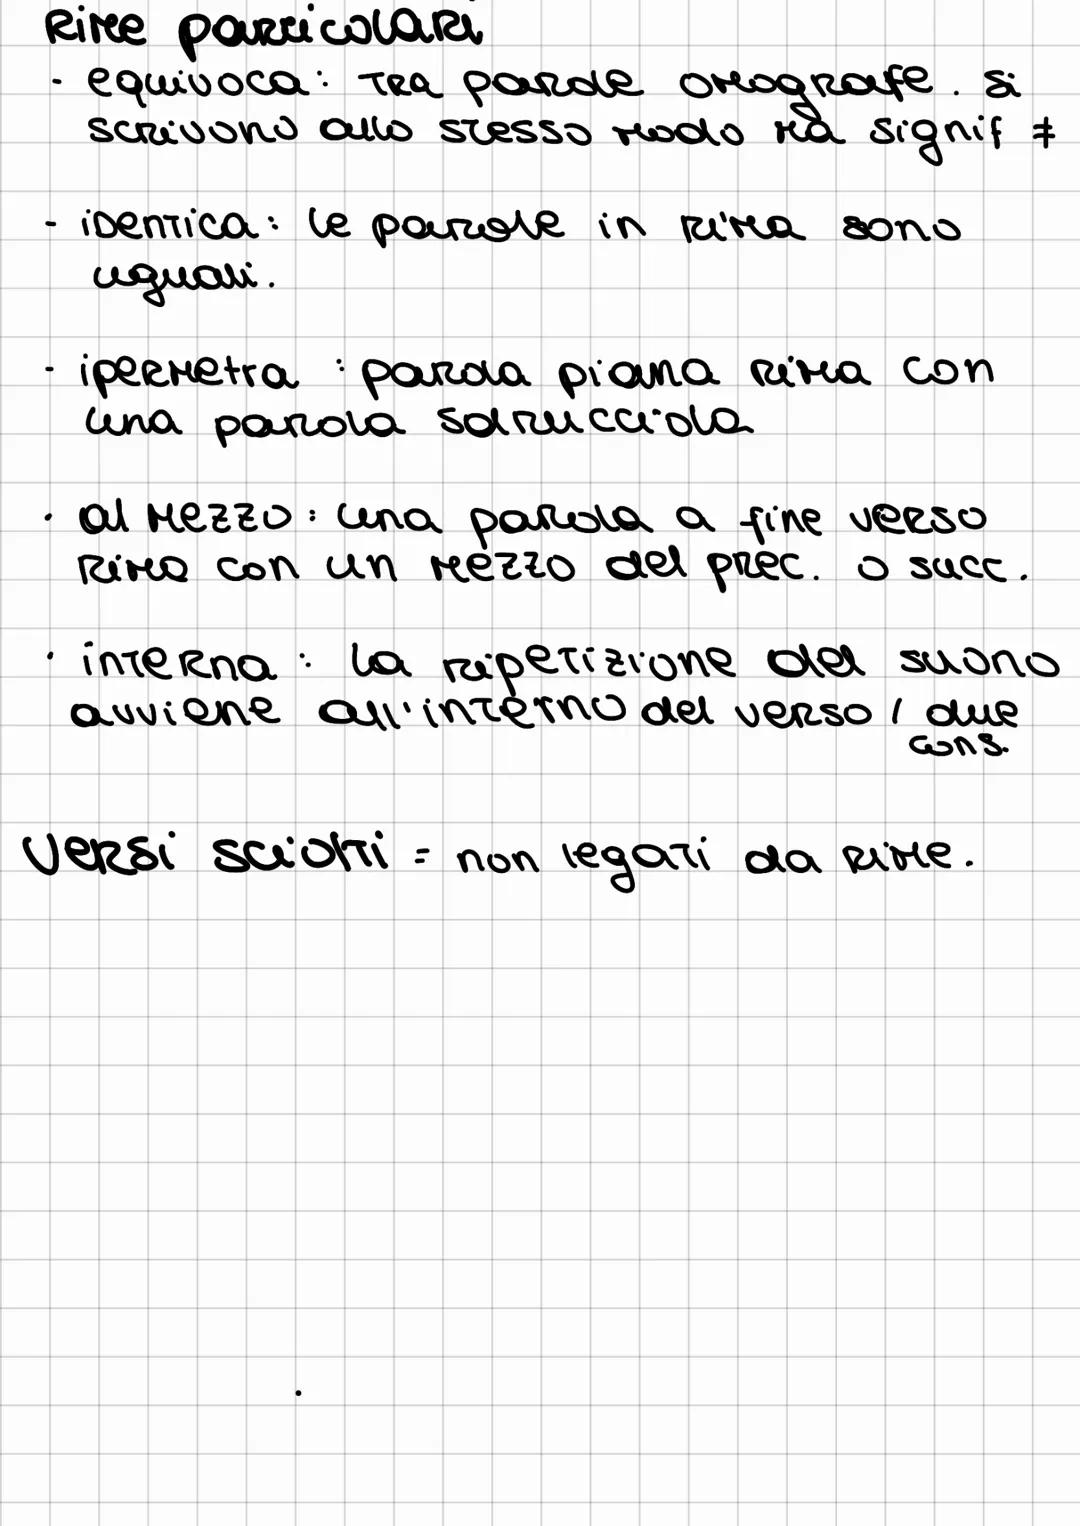 Rime particolari
- equivoca: tra parole omografe. si
scrivono allo stesso modo ma signif ≠
- identica: le parole in rima sono
uguali.
- ipermetra : parola piana rima con
una parola sdrucciola
· al mezzo: una parola a fine verso
rima con un mezzo del prec. o succ.
· interna: la ripetizione del suono
avviene all'interno del verso / due
cons.
Versi sciolti = non legati da rime.